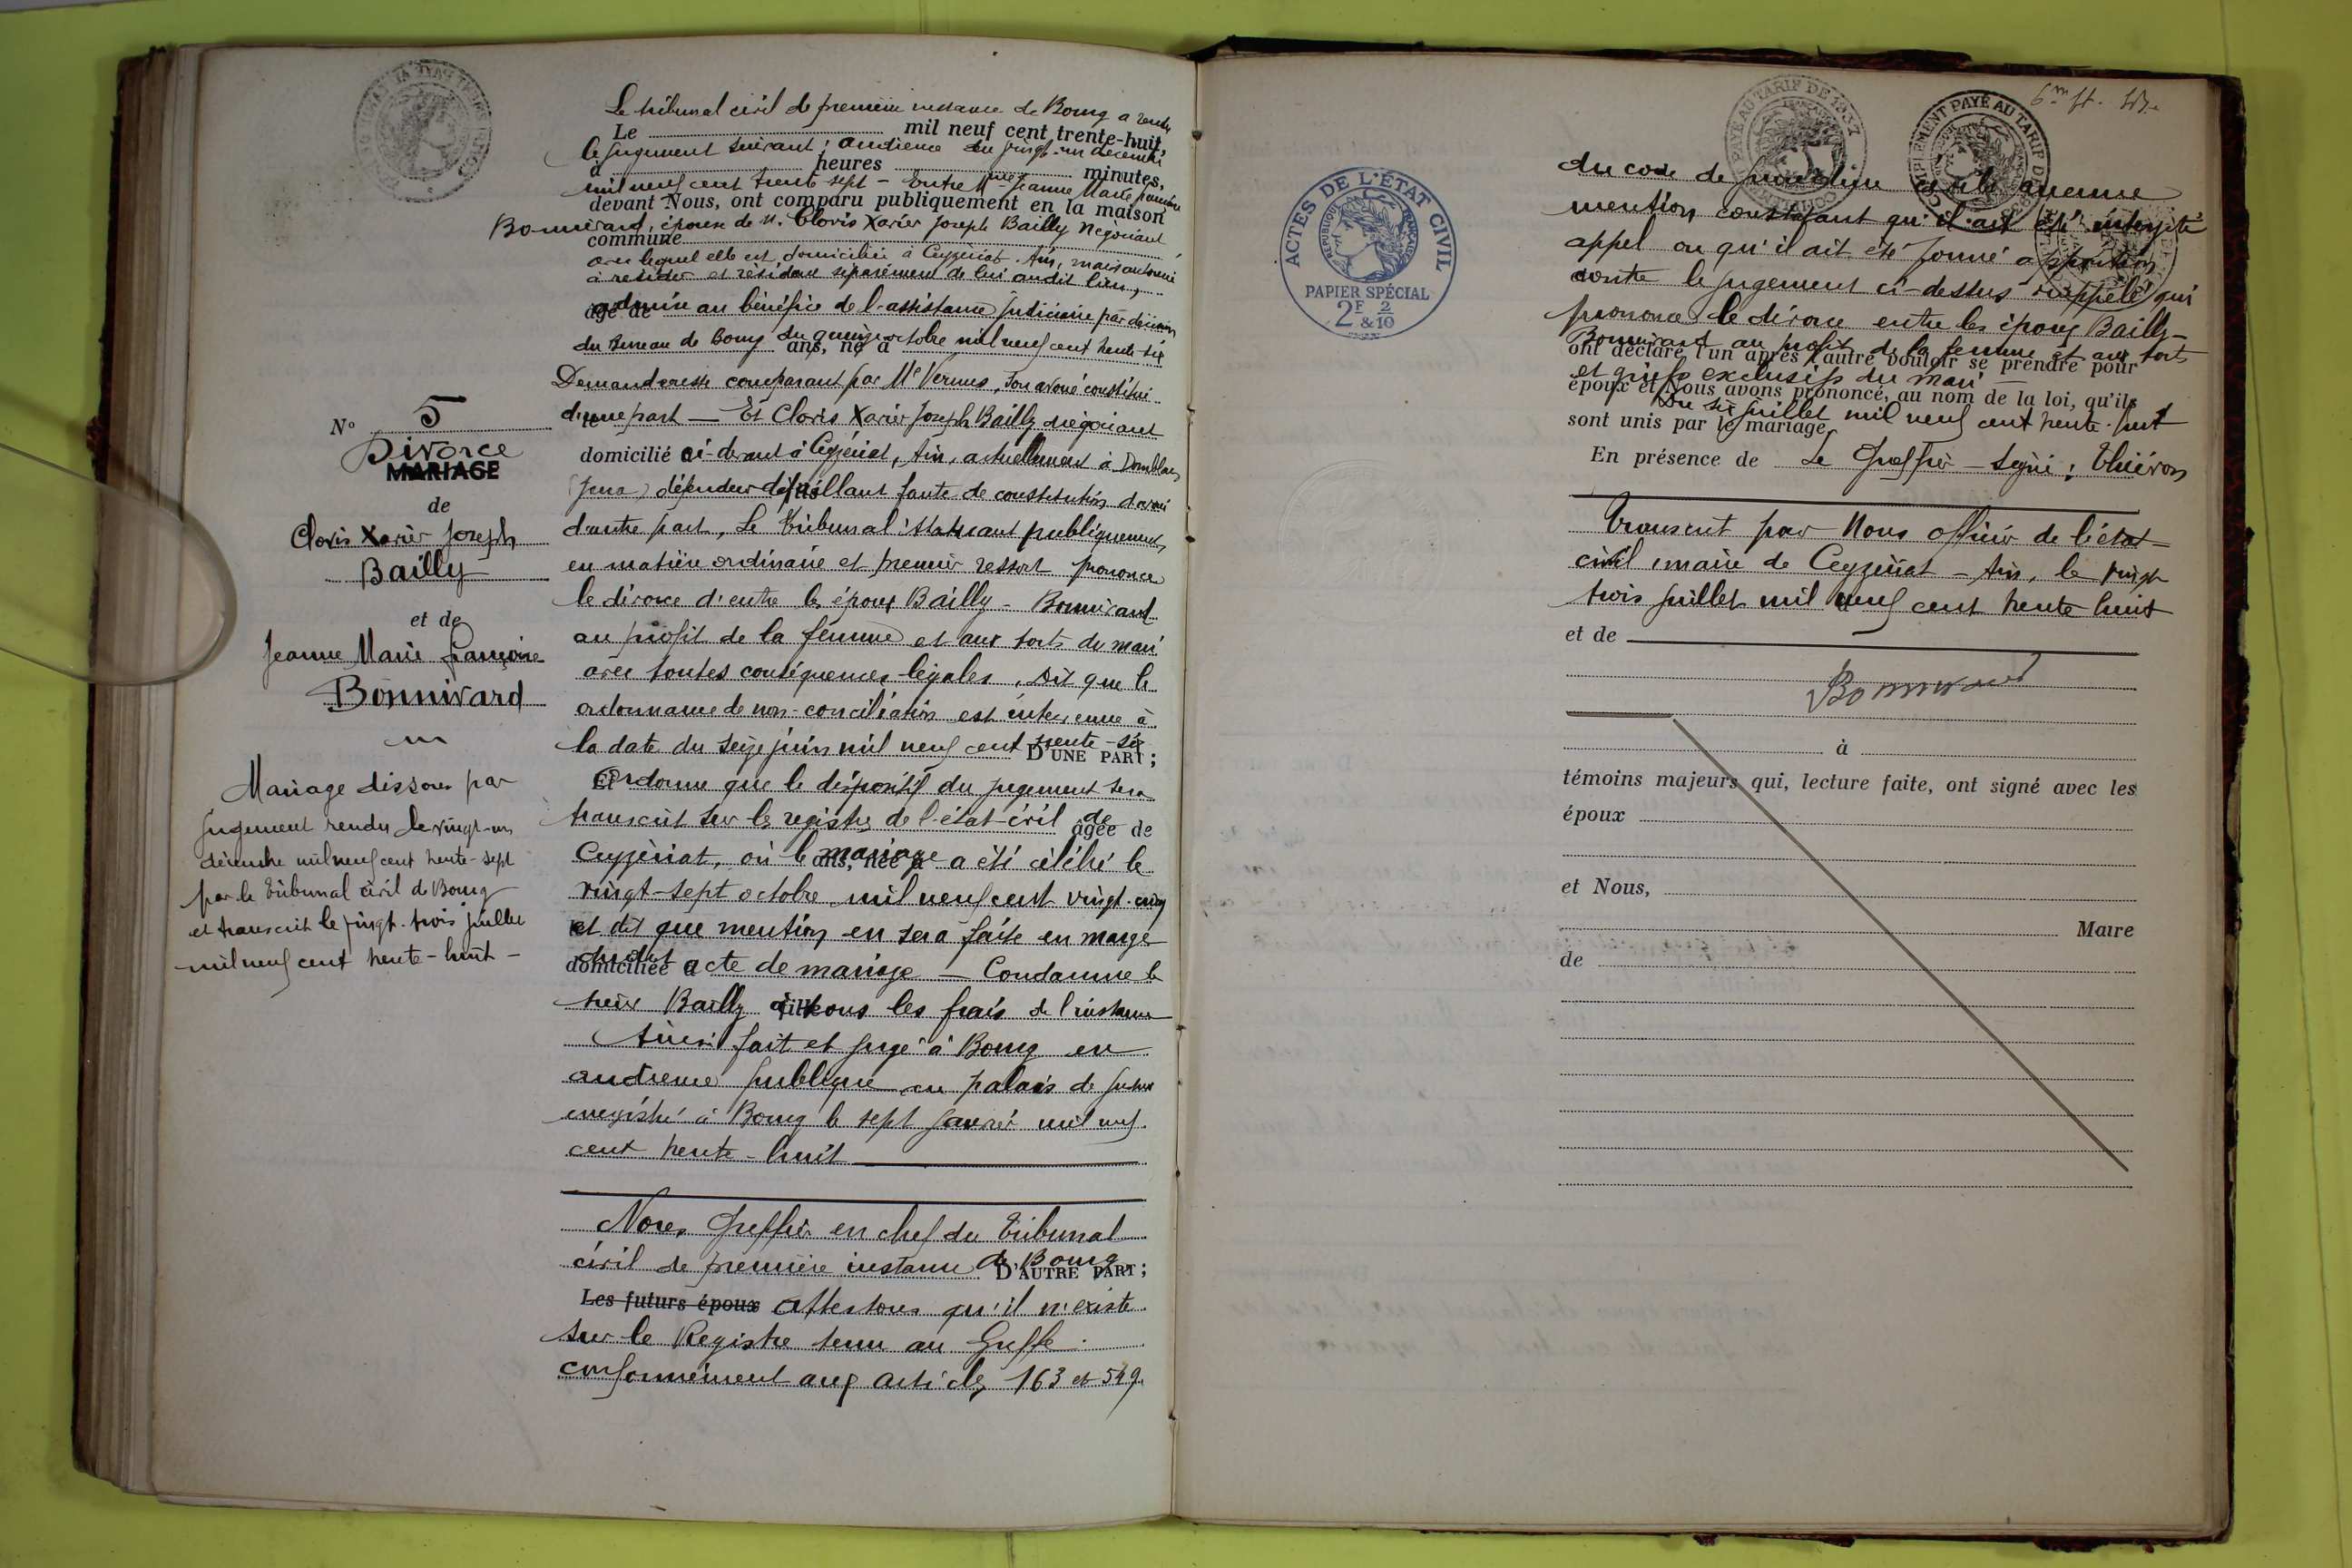 N° 5
Divorce
MARIAGE
de
Clovis Xavier Joseph
Bailly
et de
Jeanne Marie Françoise
Bonnivard
Mariage dissous par
jugement rendu le vingt-un
décembre mil neuf cent trente-sept
par le Tribunal civil de Bourg
et transcrit le vingt-trois juillet
mil neuf cent trente-huit -
Le tribunal civil de première instance de Bourg a rendu
Le mil neuf cent trente-huit,
le jugement suivant : audience du vingt-un décembre
à heures minutes,
mil neuf cent trente sept - Entre Mme Jeanne Marie Françoise
devant Nous, ont comparu publiquement en la maison
Bonnivard, épouse de M. Clovis Xavier Joseph Bailly négociant
commune
avec lequel elle est domiciliée à Ceyzériat. Ain, mais autorisée
à résider et résidant séparément de lui audit lieu,
âgé de
admise au bénéfice de l'assistance judiciaire par décision
du Bureau de Bourg du quinze octobre mil neuf cent trente-six
ans, né à
Demanderesse comparant par Me Vernus, son avoué constitué
d'une part — Et Clovis Xavier Joseph Bailly négociant
domicilié ci-devant à Ceyzériat, Ain, actuellement à Domblans
(Jura) défendeur défaillant faute de constitution d'avoué
d'autre part, Le Tribunal statuant publiquement,
en matière ordinaire et premier ressort prononce
le divorce d'entre les époux Bailly - Bonnivard
au profit de la femme et aux torts du mari
avec toutes conséquences légales. Dit que le
ordonnance de non-conciliation est intervenue à
la date du seize juin mil neuf cent trente-six
D'UNE PART ;
Ordonne que le dispositif du jugement sera
transcrit sur les registres de l'état-civil de
âgée de
Ceyzériat, où le mariage a été célébré le
ans, née à
vingt-sept octobre mil neuf cent vingt-cinq
et dit que mention en sera faite en marge
dudit acte de mariage — Condamne le
domiciliée à
sieur Bailly à tous les frais de l'instance
Ainsi fait et jugé à Bourg en
audience publique au palais de justice
enregistré à Bourg le sept janvier mil neuf
cent trente-huit
Nous, Greffier en chef du Tribunal
civil de première instance de Bourg
D'AUTRE PART ;
Les futurs époux Attestons qu'il n'existe
sur le Registre tenu au Greffe
conformément aux articles 163 et 549
ACTES DE L'ÉTAT CIVIL
RÉPUBLIQUE FRANÇAISE
PAPIER SPÉCIAL
2F & 2/10
PAYÉ AU TARIF DE 1937
COMPLÉMENT PAYÉ AU TARIF DE
du code de procédure civile aucune
mention constatant qu'il ait été interjeté
appel ou qu'il ait été formé opposition
contre le jugement ci-dessus rappelé qui
prononce le divorce entre les époux Bailly-
Bonnivard au profit de la femme et aux torts
ont déclaré l'un après l'autre vouloir se prendre pour
et griefs exclusifs du mari
époux et Nous avons prononcé, au nom de la loi, qu'ils
Du six juillet mil neuf cent trente-huit
sont unis par le mariage.
En présence de Le Greffier - signé :
Transcrit par Nous officier de l'état-
civil, maire de Ceyzériat - Ain, le vingt
trois juillet mil neuf cent trente huit
et de
Bonnivard
à
témoins majeurs qui, lecture faite, ont signé avec les
époux
et Nous,
Maire
de